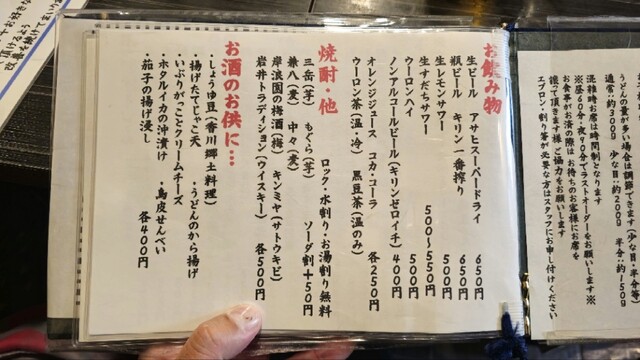 うどんの量が多い場合は調節できます(少な目・半分等)
通常:約300g 少な目:約200g 半分:約150g
混雑時お席は時間制となります
※昼60分・夜90分でラストオーダーをお願いします※
お食事がお済の際は お待ちのお客様にお席を
譲って頂きます様 ご協力をお願いします
エプロン・割り箸が必要な方はスタッフにお申し付けください
お飲み物
生ビール アサヒスーパードライ 650円
瓶ビール キリン一番搾り 650円
生レモンサワー 500円
生すだちサワー 500〜550円
ウーロンハイ 500円
ノンアルコールビール(キリンゼロイチ) 400円
オレンジジュース コカ・コーラ 各250円
ウーロン茶(温・冷) 黒豆茶(温のみ)
焼酎・他
ロック・水割り・お湯割り無料
ソーダ割+50円
三岳(芋) もぐら(芋)
兼八(麦) 中々(麦)
岸浪園の梅酒(梅) キンミヤ(サトウキビ)
岩井トラディション(ウイスキー) 各500円
お酒のお供に…
・しょうゆ豆(香川郷土料理)
・揚げたてじゃこ天 ・うどんのから揚げ
・いぶりがっことクリームチーズ
・ホタルイカの沖漬け ・鳥皮せんべい
・茄子の揚げ浸し 各400円